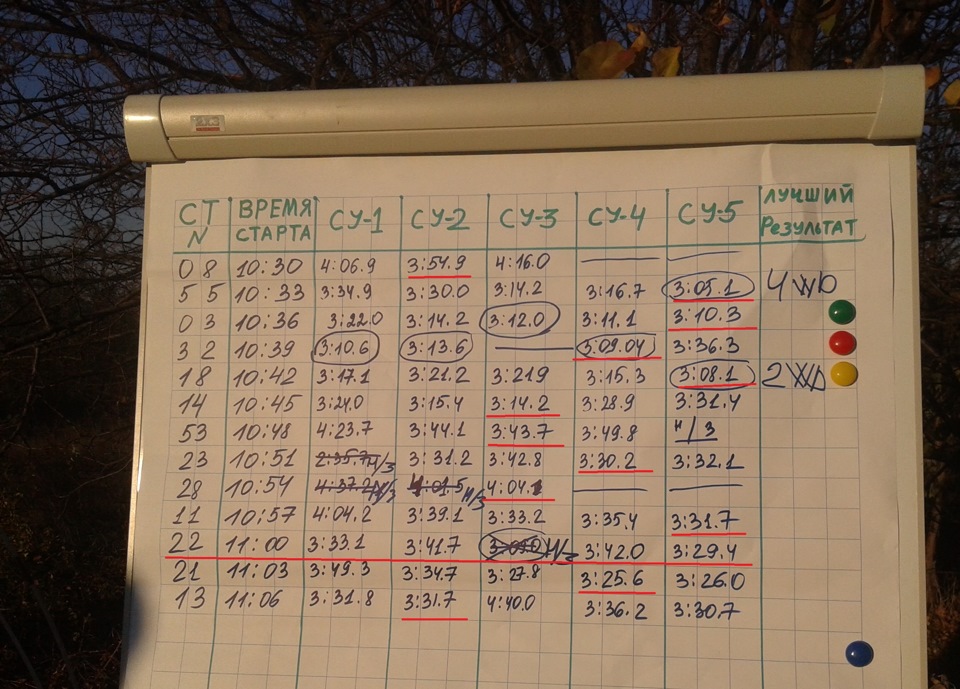 СТ N ВРЕМЯ СТАРТА СУ-1 СУ-2 СУ-3 СУ-4 СУ-5 ЛУЧШИЙ РЕЗУЛЬТАТ
08 10:30 4:06.9 3:54.9 4:16.0 — —
55 10:33 3:34.9 3:30.0 3:14.2 3:16.7 3:05.1 4WD
03 10:36 3:22.0 3:14.2 3:12.0 3:11.1 3:10.3
32 10:39 3:10.6 3:13.6 — 3:09.04 3:36.3
18 10:42 3:17.1 3:21.2 3:21.9 3:15.3 3:08.1 2WD
14 10:45 3:24.0 3:15.4 3:14.2 3:28.9 3:31.4
53 10:48 4:23.7 3:44.1 3:43.7 3:49.8 н/з
23 10:51 2:35.7 н/з 3:31.2 3:42.8 3:30.2 3:32.1
28 10:54 4:37.2 н/з 4:01.5 н/з 4:04.1 — —
11 10:57 4:04.2 3:39.1 3:33.2 3:35.4 3:31.7
22 11:00 3:33.1 3:41.7 н/з 3:42.0 3:29.4
21 11:03 3:49.3 3:34.7 3:27.8 3:25.6 3:26.0
13 11:06 3:31.8 3:31.7 4:40.0 3:36.2 3:30.7